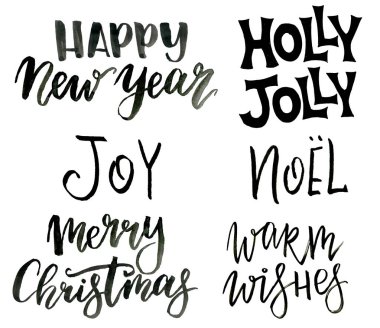 HAPPY
New Year
HOLLY
JOLLY
JOY
NOËL
Merry
Christmas
warm
wishes